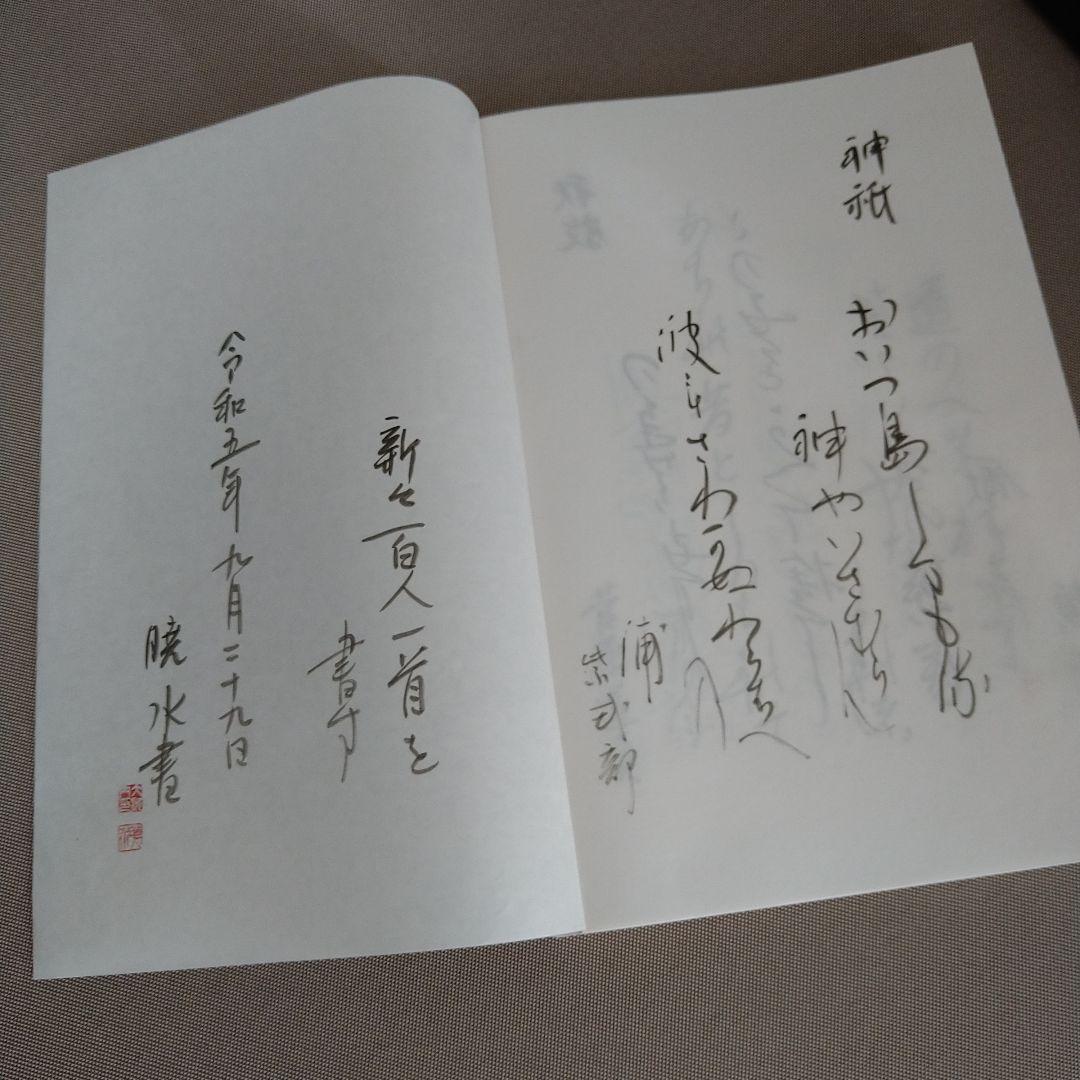 神祇
おいつ島しまもる
神やいさむらん
波もさわかぬわらはへ
の
浦
紫式部
新々百人一首を
書す
令和五年九月二十九日
暁水書